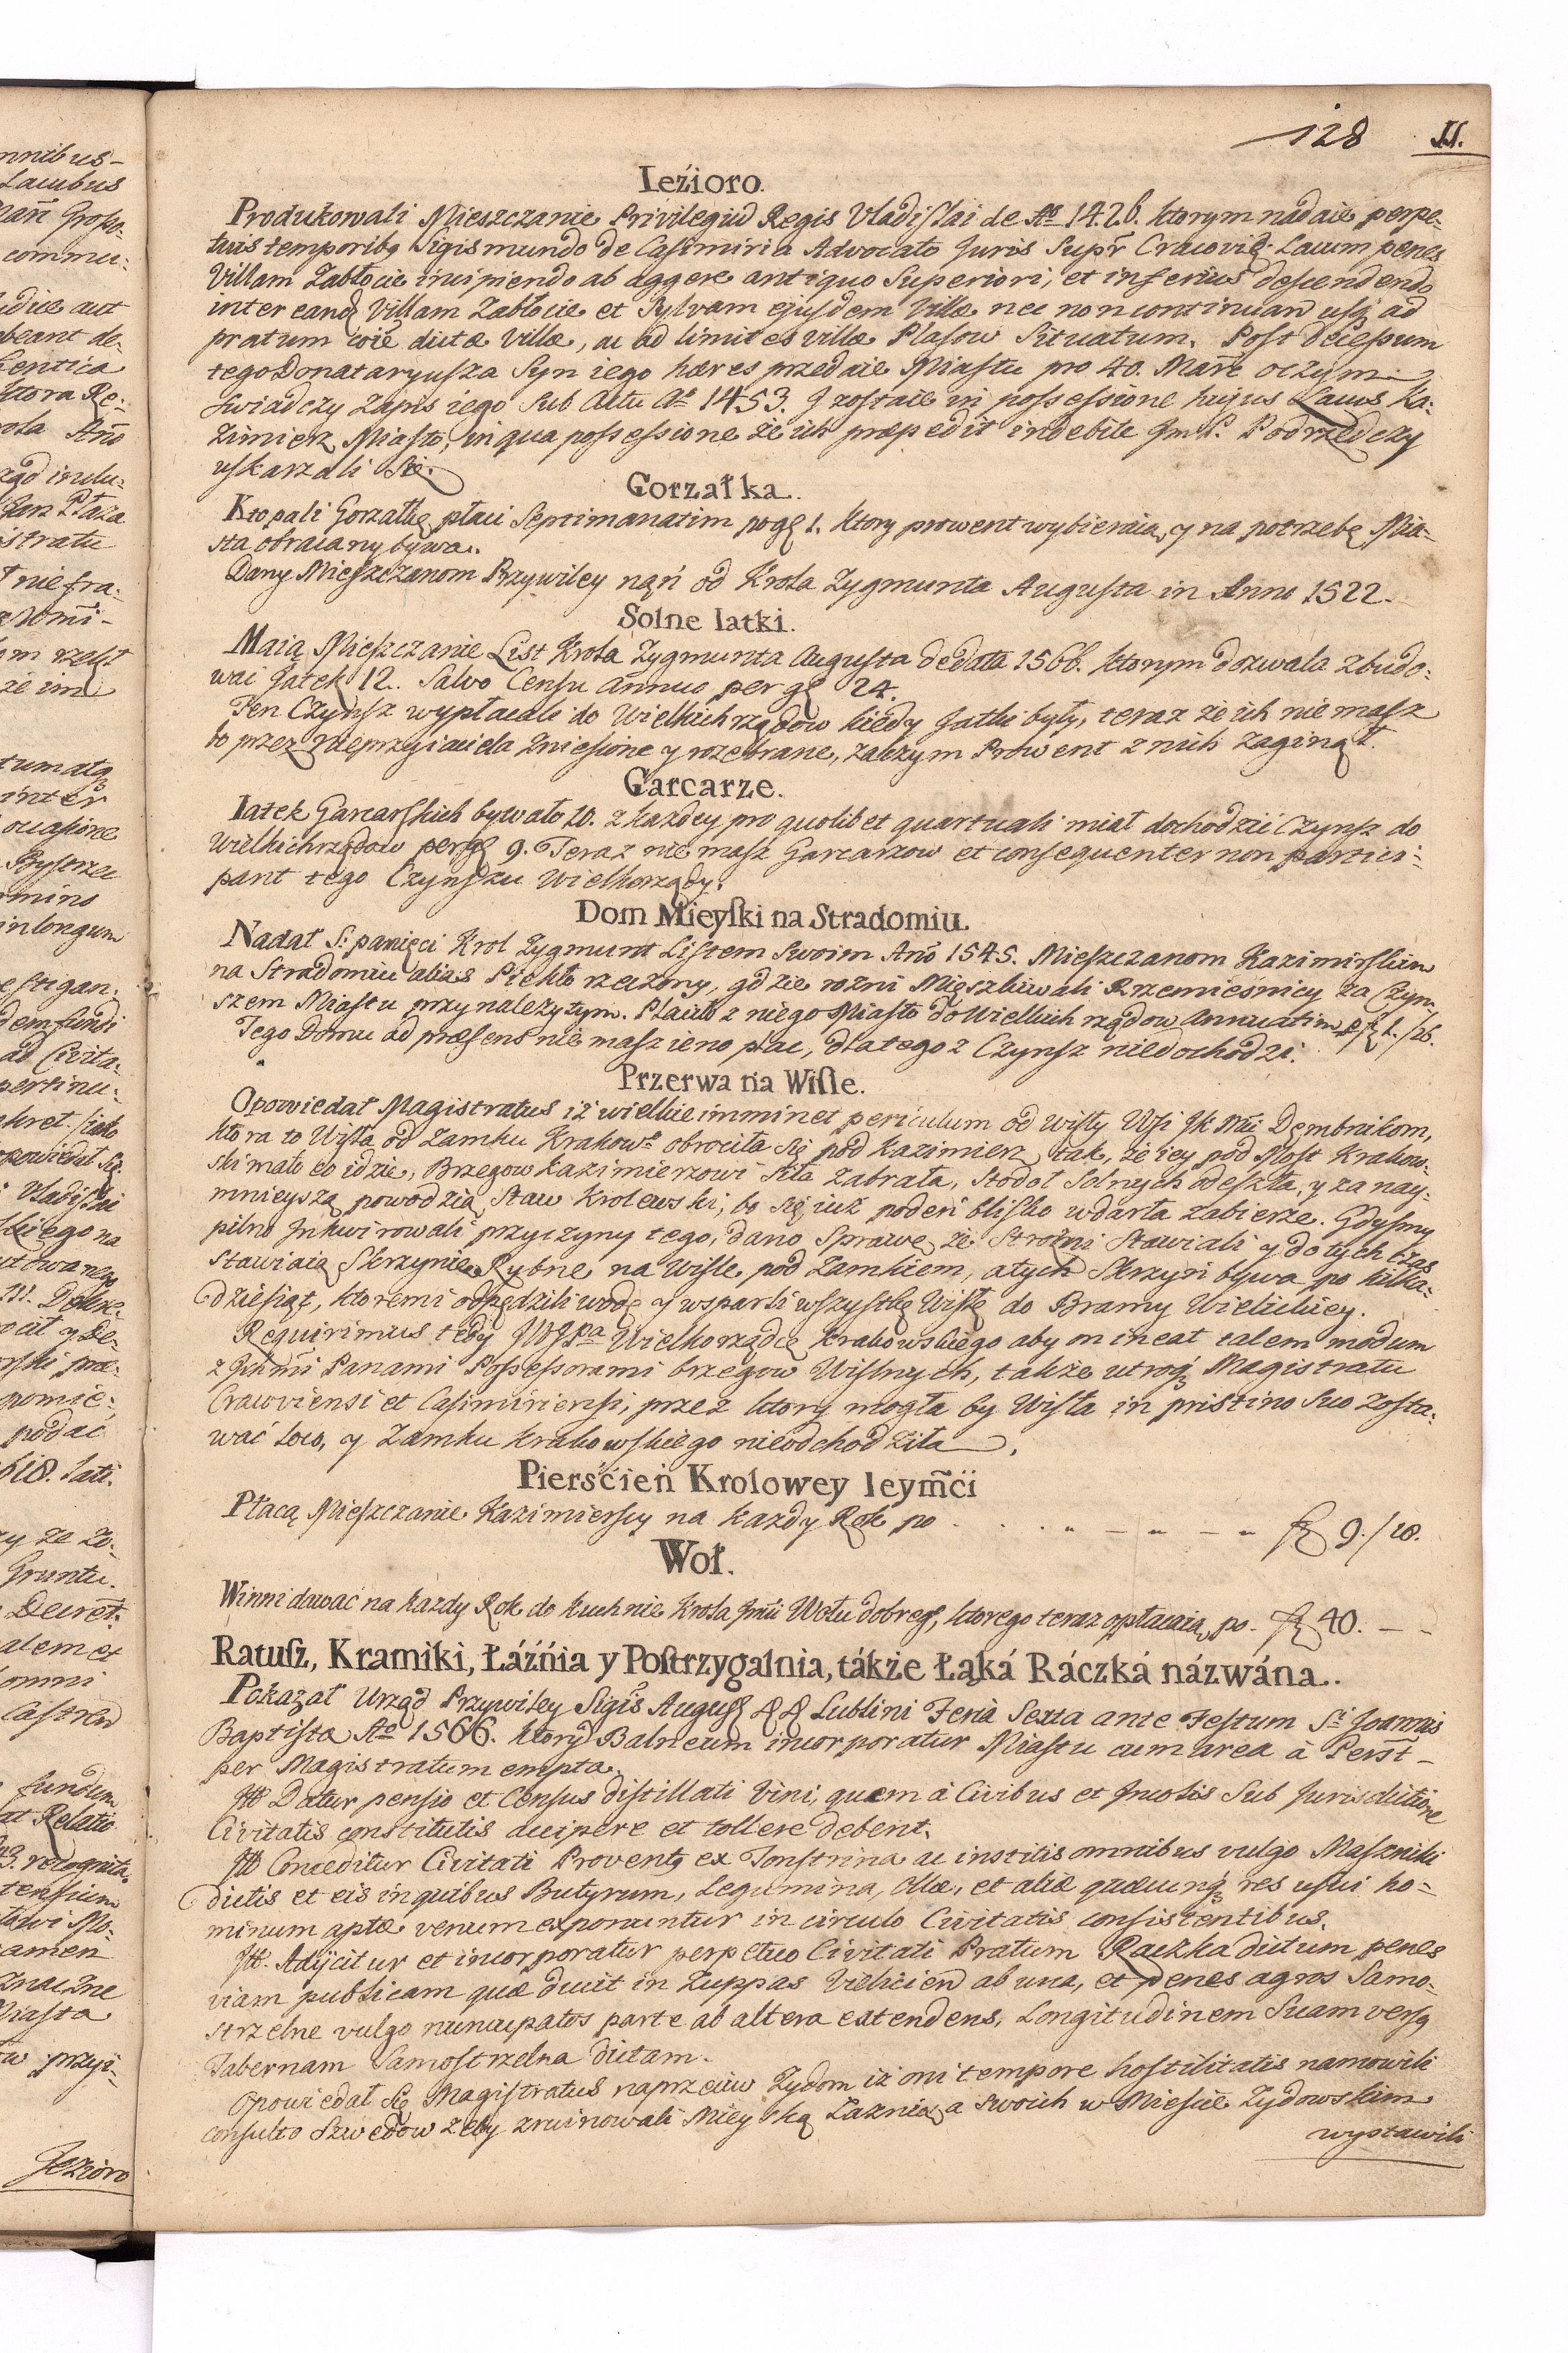 128 II.
Ieźioro.
Produkowali Mieszczanie Privilegiū Regis Vladislai de Aō 1426. ktorym nadaie perpe-
tuis temporibq Sigismundo de Casimiria Advocato Juris Supr̄ Cracovię Lacum penes
Villam Zabłocie incipiendo ab aggere antiquo Superiori, et inferius descendendo
inter eand Villam Zabłocie et Sylvam ejusdem Villæ nec non continuan usq̨ ad
pratum dictæ villæ, ac ad limites villæ Płasow Situatum. Post decessum
tego Donataryusza Syn iego hæres przedaie Miastu pro 40. Marc oczym
swiadczy Zapis iego Sub Actu Aō 1453. J zostaie in possessione hujus Lacus Ka-
zimierz Miasto, in qua possessione że ich præpedit indebite Jm P. Podrzędczy
uskarzali się.
Gorzałka.
Kto pali Gorzałkę płaci Septimanatim po gę 1. ktory prowent wybieraią, y na potrzebę Mia-
sta obracany bywa.
Dany Mieszczanom Przywiley nań od Krola Zygmunta Augusta in Anno 1522.
Solne Iatki.
Maią Mieszczanie List Krola Zygmunta Augusta de data 1566. ktorym dozwala zbudo-
wac Jatek 12. Salvo Censu annuo per gę 24.
Ten Czynsz wypłacali do Wielkichrządow kiedy Jatki były, teraz że ich nie masz
bo przez nieprzyiaciela zniesione y rozebrane, zaczym Prowent z nich zaginął.
Garcarze.
Iatek Garcarskich bywało 10. z każdey pro quolibet quartuali miał dochodzić Czynsz do
Wielkichrządow per gę 9. Teraz nie masz Garcarzow et consequenter non partici-
pant tego Czynszu Wielkorządy.
Dom Mieyski na Stradomiu.
Nadał S: pamięci Krol Zygmunt Listem Swoim Anō 1545. Mieszczanom Kazimirskim
na Stradomiu alias Piekło rzeczony, gdzie rozni Mięszkiwali Rzemiesnicy za Czyn-
szem Miastu przynależytym. Płaciło z niego Miasto do Wielkich rządow Annuatim 1./26.
Tego Domu ad præsens nie masz ieno plac, dlatego z Czynsz niedochodzi.
Przerwa na Wisle.
Opowiedał Magistratus iż wielkie imminet periculum od Wisły Wsi Jk Mci Dębnikom,
ktora to Wisła od Zamku Krakowo obrociła się pod Kazimierz, tak, że iey pod Most Krakow-
ski mało co idzie, Brzegow Kazimierzowi siła zabrała, Stodoł Solnych odeszła, y za nay-
mnieyszą powodzią, Staw Krolewski, bo się iuż podeń blisko wdarła zabierze. Gdysmy
pilno Jnkwirowali przyczyny tego, dano Sprawę że Strożni Stawiali y do tych czas
stawiaią Skrzynie Rybne na Wisle pod Zamkiem, a tych Skrzyń bywa po kilka-
dziesiąt, ktoremi odpędzili wodę y wsparli wszystkę Wisłę do Bramy Wielickiey.
Requirimus tedy JWJPa Wielkorządcę Krakowskiego aby on ineat talem modum
z Jchmci Panami Possessorami brzegow Wislnych, także utroq̨ Magistratu
Cracoviensi et Casimiriensi, przez ktory mogła by Wisła in pristino Suo zosta-
wać loco, y Zamku Krakowskiego nieodchodziła.
Pierśćień Krolowey Ieym̄ći
Płacą Mieszczanie Kazimierscy na każdy Rok po . . . . - - - fę 9./18.
Woł.
Winni dawać na każdy Rok do kuchnie Krola Jmći Wołu dobreg, ktorego teraz opłacaią po - fę 40. - -
Ratusz, Kramiki, Łáźńia y Postrzygalnia, tákże Łąká Ráczká názwána..
Pokazał Urząd Przywiley Sigis August Lublini Feria Sexta ante Festum Si Joannis
Baptista Aō 1566. ktory Balneum incorporatur Miastu cum area à
per Magistratum empta.
Itē Datur pensio et Census distillati Vini, quem à Civibus et Jncolis Sub Jurisdictione
Civitatis constitutis accipere et tollere debent.
Itē Conceditur Civitati Proventq ex Tonstrina ac institis omnibus vulgo Maszniki
dictis et eis in quibus Butyrum, Legumina, Ollæ, et aliæ quæcunq̨ res usui ho-
minum aptæ venum exponuntur in circulo Civitatis consistentibus.
Itē. Adijcitur et incorporatur perpetuo Civitati Pratum Raczka dictum penes
viam publicam quæ ducit in Zuppas Vielicien ab una, et penes agros Samo-
strzelne vulgo nuncupatos parte ab altera extendens, Longitudinem Suam versq
Tabernam Samostrzelna dictam.
Opowiedał Się Magistratus naprzeciw Zydom iż oni tempore hostilitatis namowili
consulto Szwedow żeby zruinowali Mieyską Łaznią, a swoich w Miescie Zydowskim
wystawili